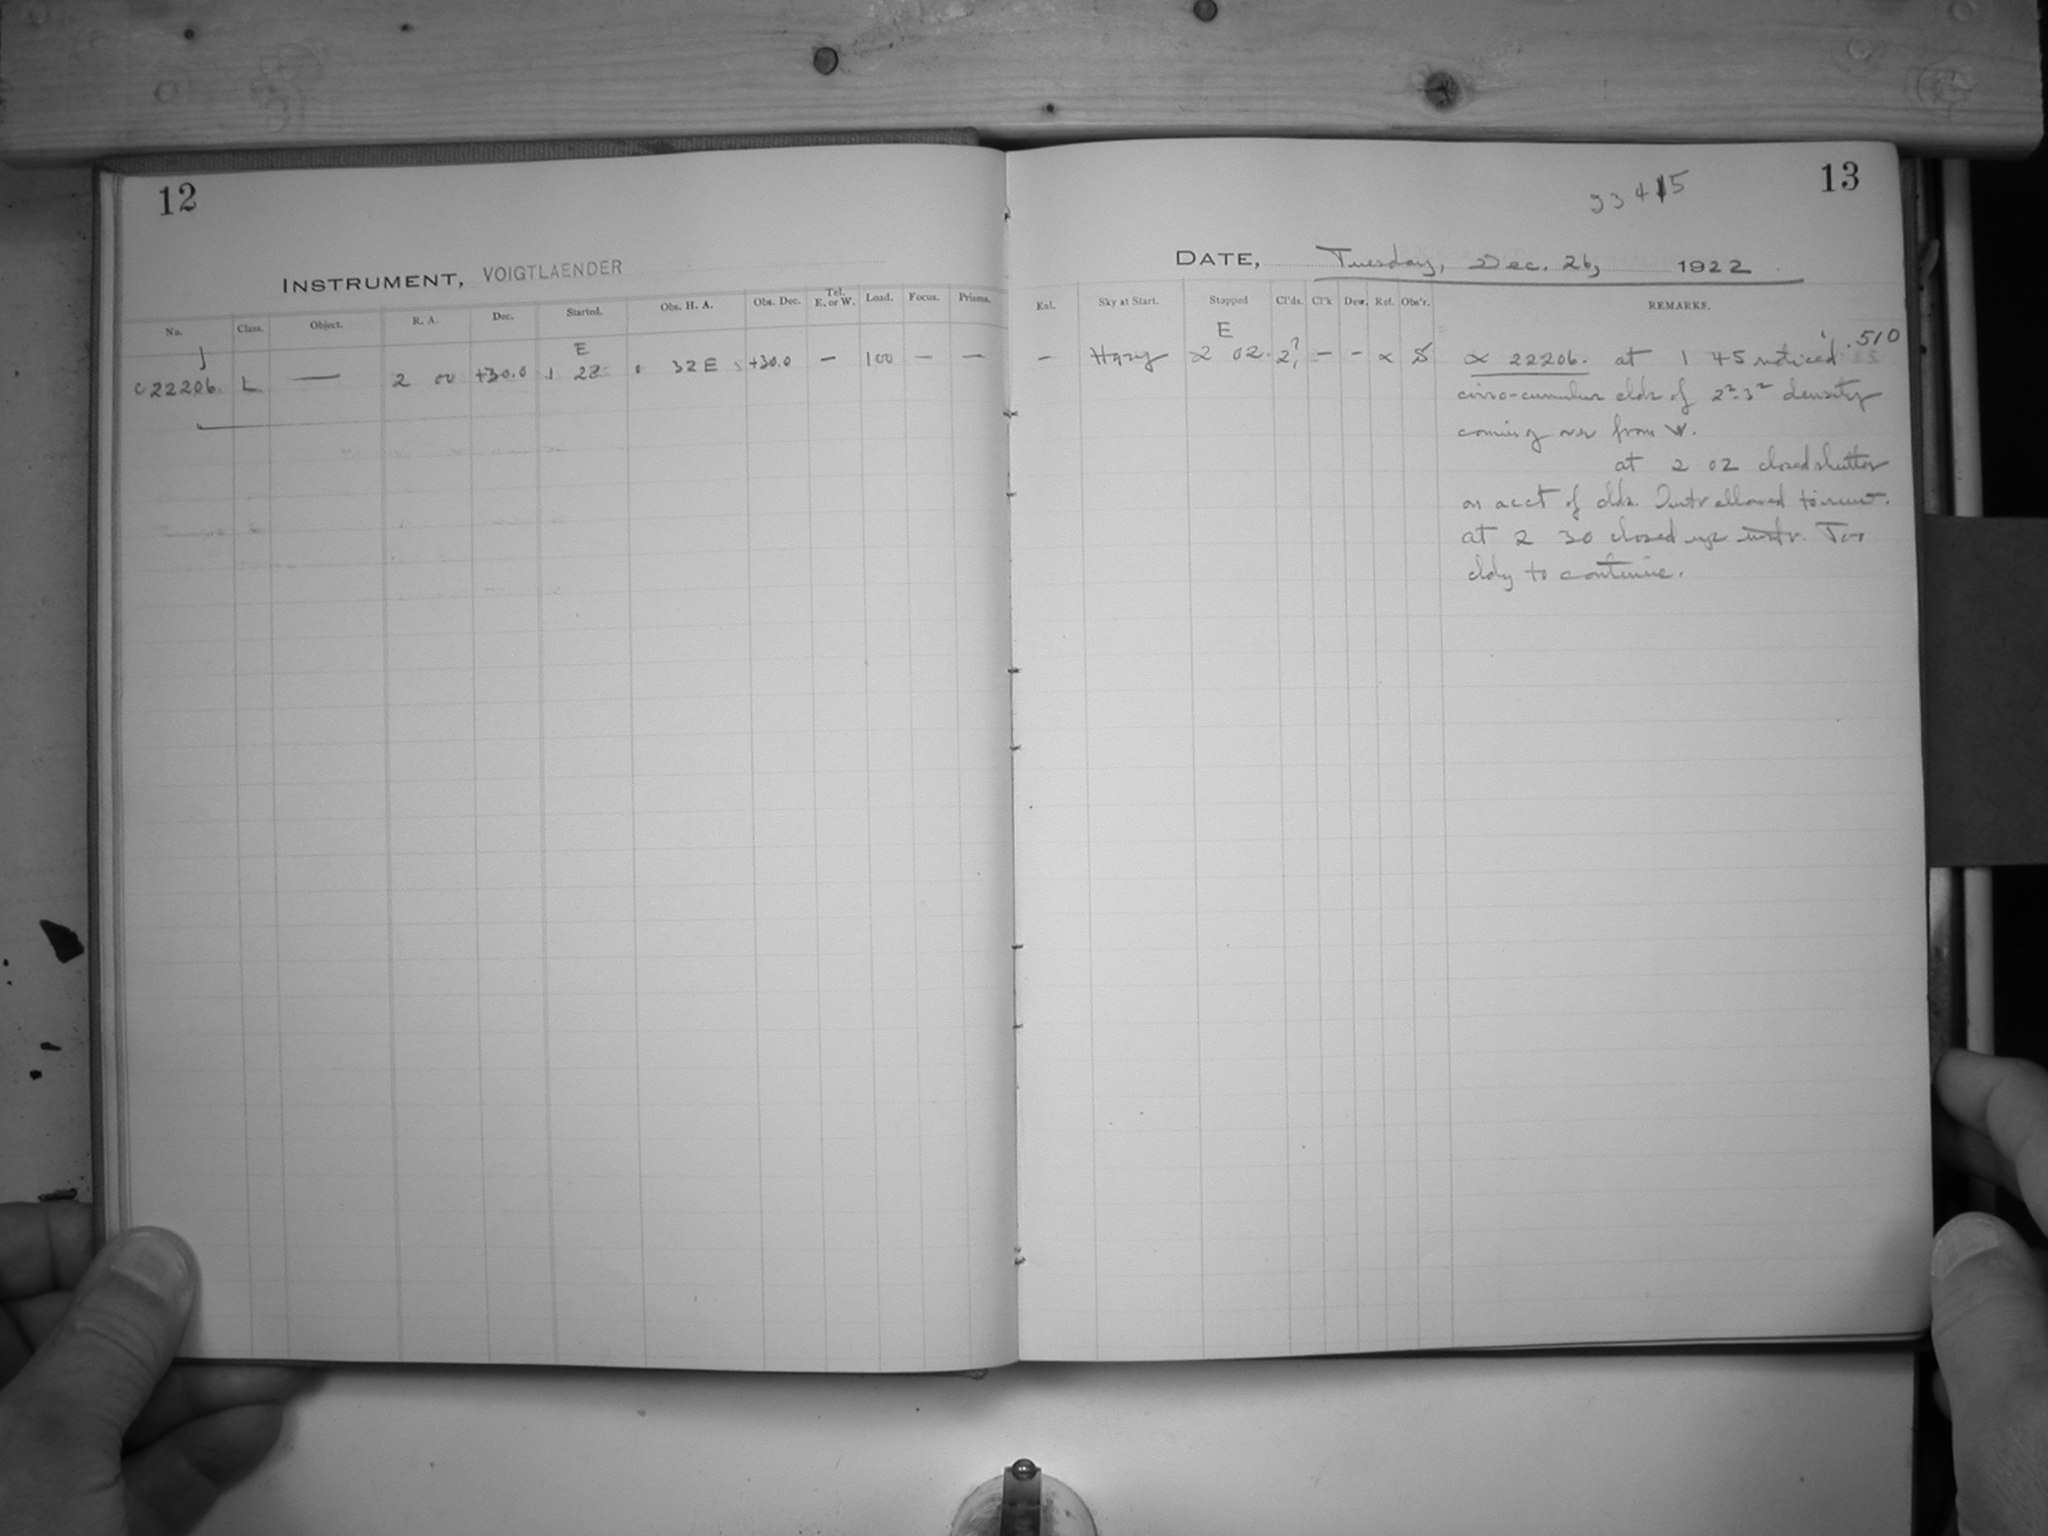 12
INSTRUMENT, VOIGTLAENDER
No. Class. Object. R. A. Dec. Started. Obs. H. A. Obs. Dec. Tel. E. or W. Load. Focus. Prisms.
J E
C 22206. L — 2 00 +30.0 1 28 0 32 E +30.0 — 100 — —
13
33415
DATE, Tuesday, Dec. 26, 1922
Sky at Start. Stopped Cl'ds. Cl'k Dew. Ref. Obs'r. REMARKS.
E .510
— Hazy 2 02 2? — — α S α 22206. at 1 45 noticed
cirro-cumulus clds of 2²-3² density
coming over from W.
at 2 02 closed shutter
on acct of clds. Instr allowed to run.
at 2 30 closed up instr. Too
cldy to continue.